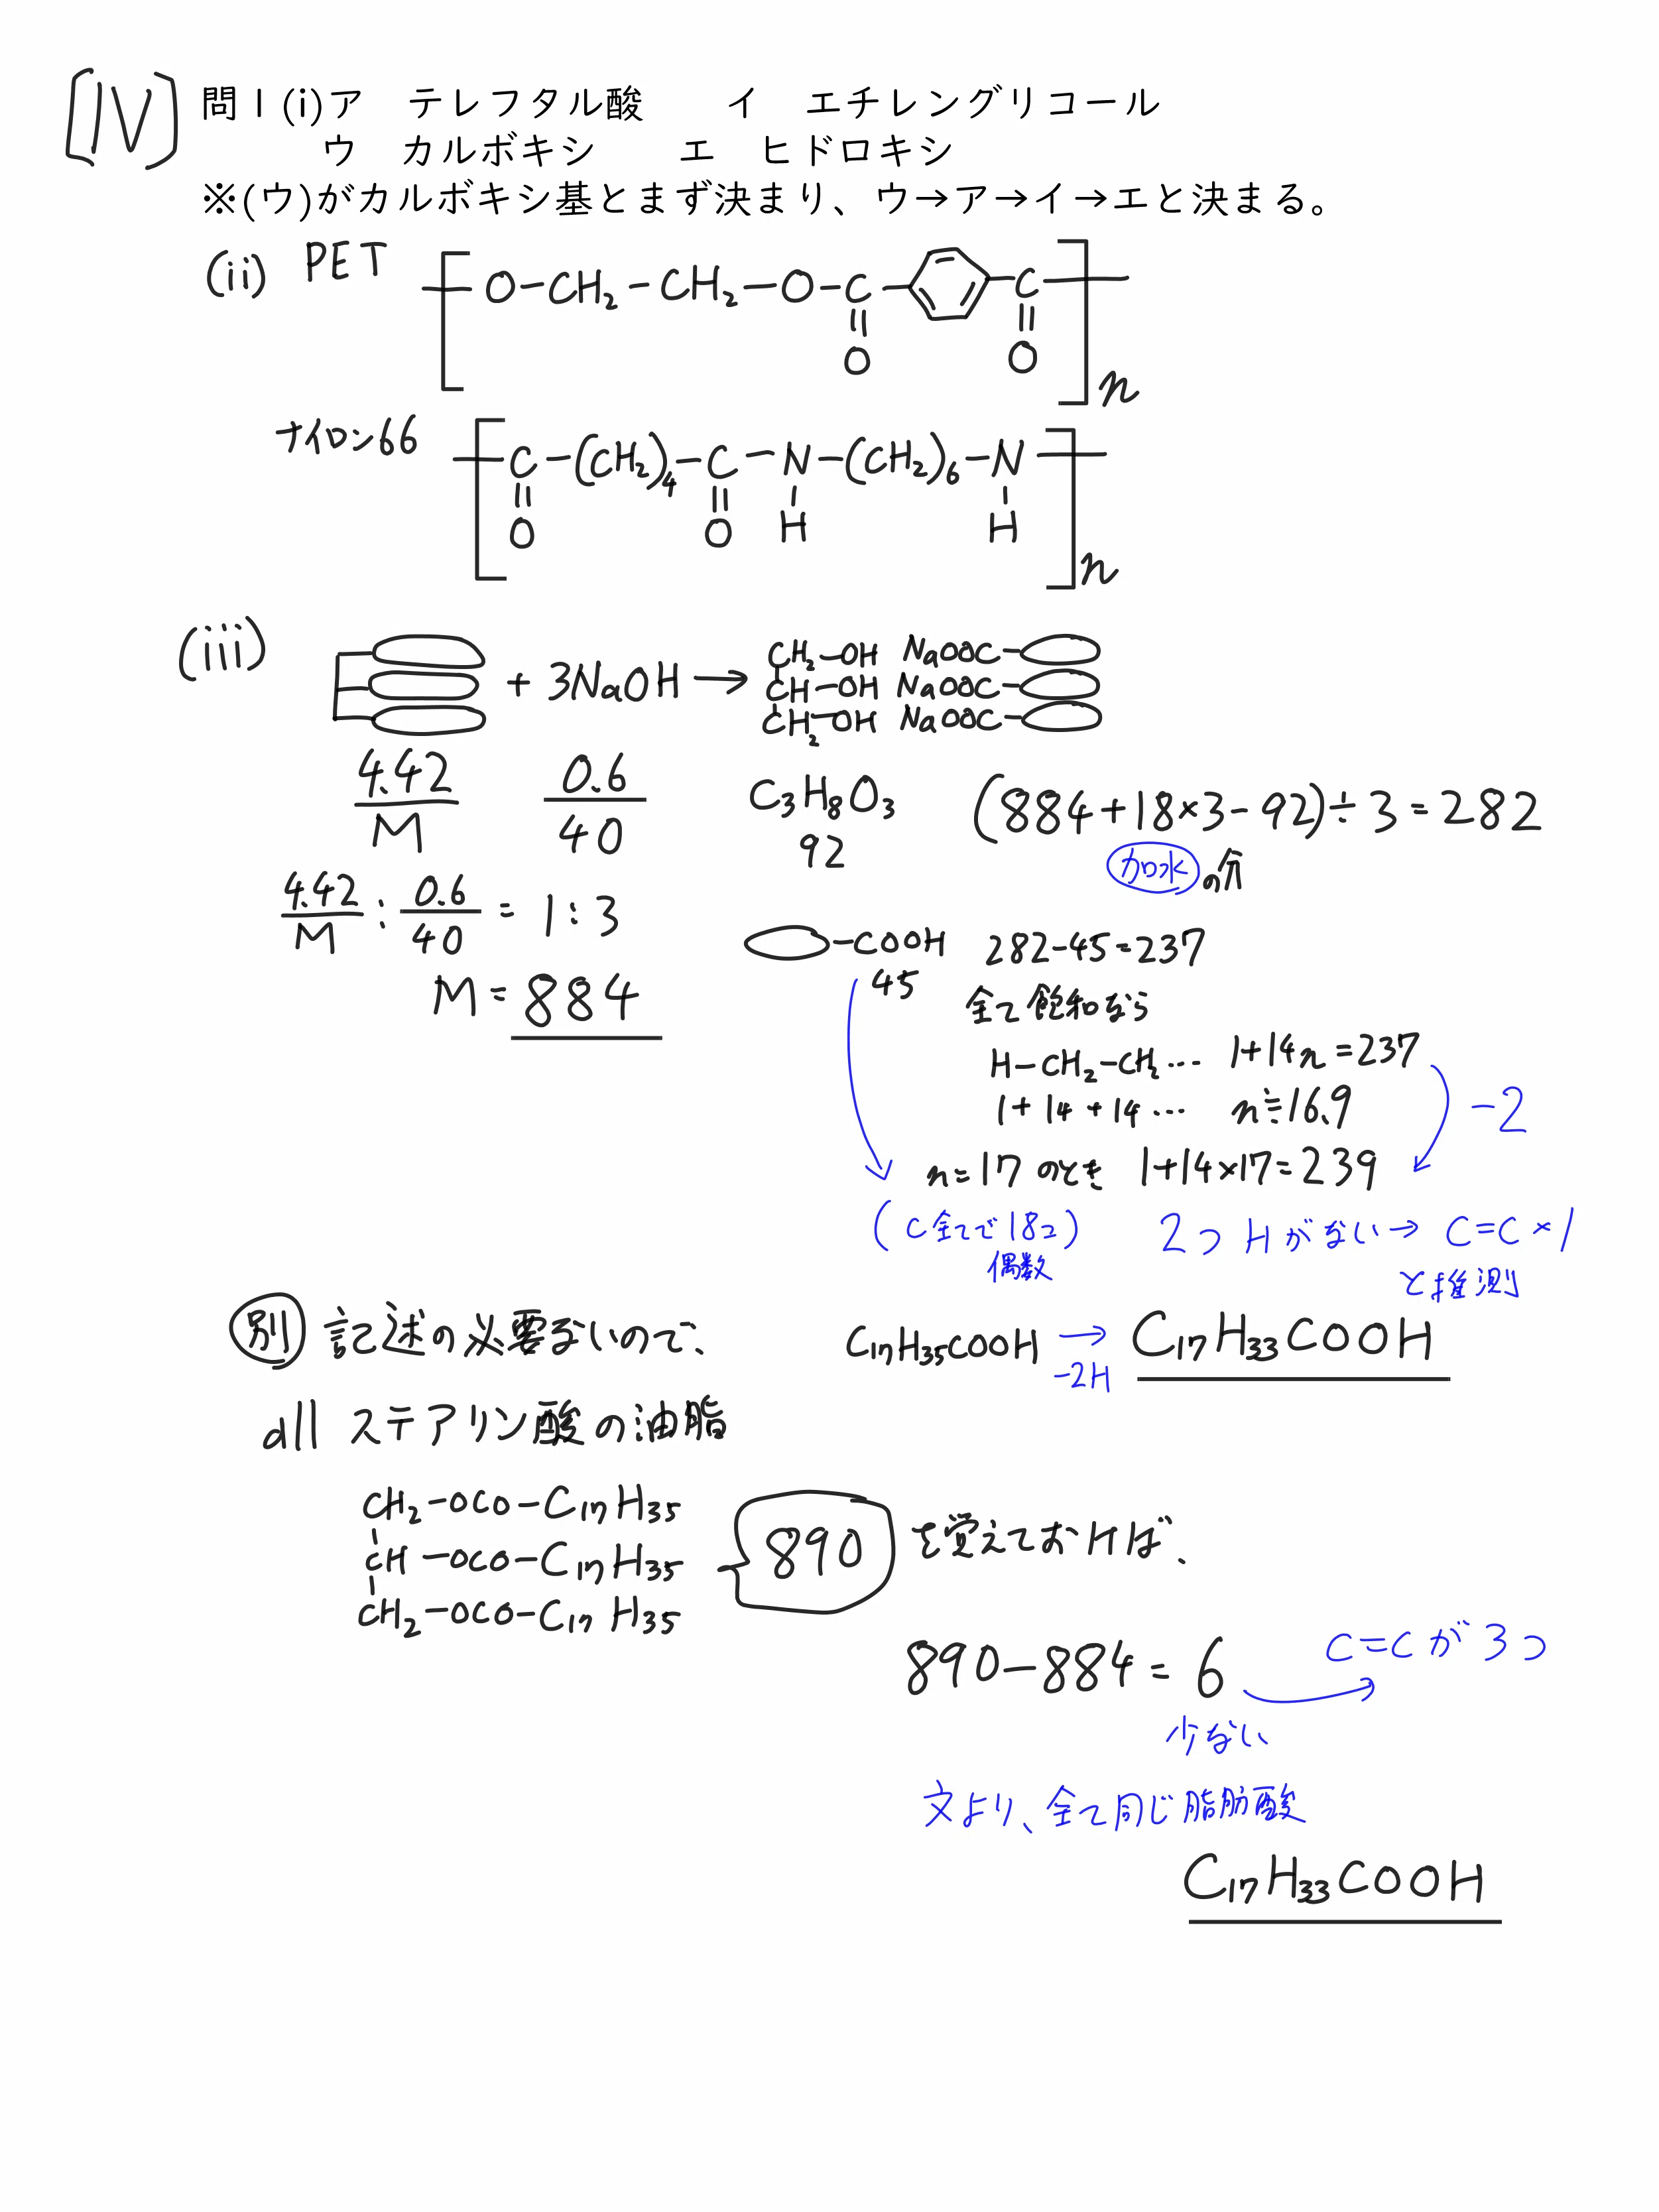 [IV] 問1(i)ア テレフタル酸 イ エチレングリコール
ウ カルボキシ エ ヒドロキシ
※(ウ)がカルボキシ基とまず決まり、ウ→ア→イ→エと決まる。
(ii) PET
[O-CH2-CH2-O-C-C]n
O O
ナイロン66
[C-(CH2)4-C-N-(CH2)6-N]n
O O H H
(iii)
+ 3NaOH →
CH2-OH NaOOC-
CH-OH NaOOC-
CH2-OH NaOOC-
4.42/M 0.6/40 C3H8O3 (884+18×3-92)÷3=282
92 加水の分
4.42/M : 0.6/40 = 1:3
M=884
-COOH 282-45=237
45 全て飽和なら
H-CH2-CH2… 1+14n=237
1+14+14… n≒16.9
-2
n=17のとき 1+14×17=239
(C全てで18コ) 2つHがない→C=C×1
偶数 と推測
C17H35COOH → C17H33COOH
-2H
別 記述の必要ないので、
all ステアリン酸の油脂
CH2-OCO-C17H35
CH-OCO-C17H35
CH2-OCO-C17H35
890 を覚えておけば、
890-884=6 C=Cが3つ
少ない
文より、全て同じ脂肪酸
C17H33COOH